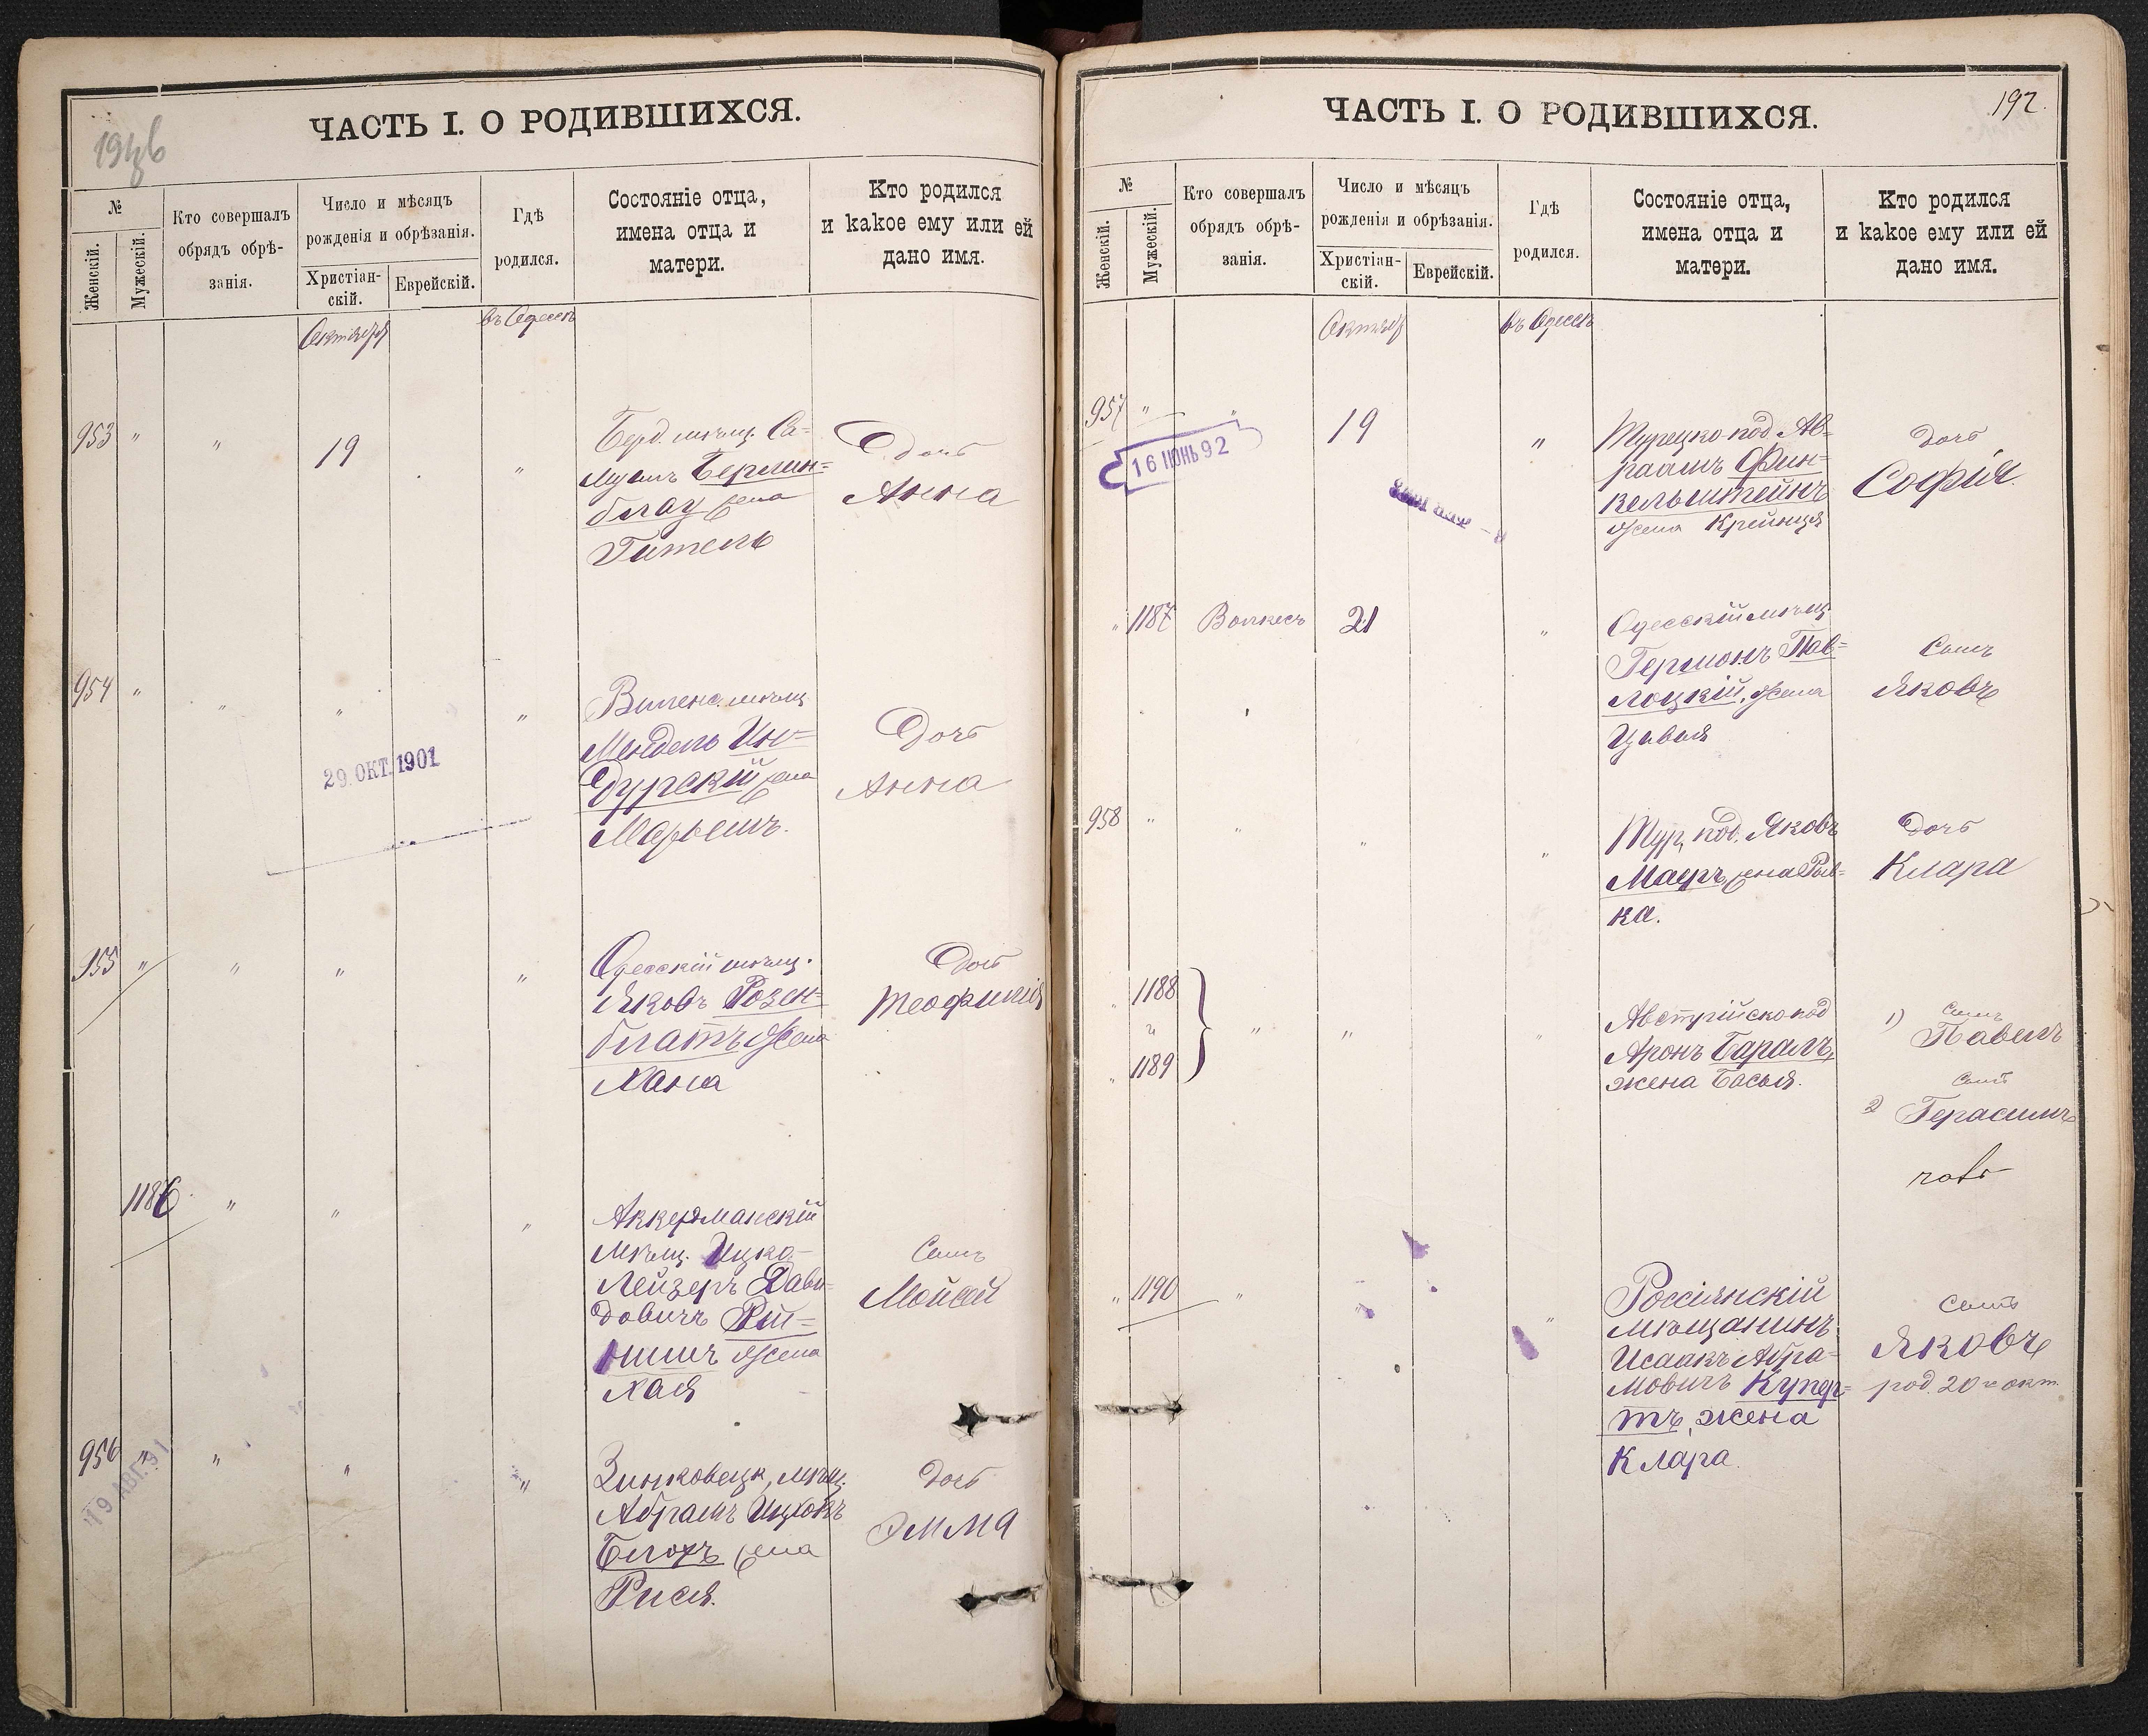 ЧАСТЬ I. О РОДИВШИХСЯ.
№
Женскій.
Мужескій.
Кто совершалъ
обрядъ обрѣ-
занія.
Число и мѣсяцъ
рожденія и обрѣзанія.
Христіан-
скій.
Еврейскій.
Гдѣ
родился.
Состояніе отца,
имена отца и
матери.
Кто родился
и какое ему или ей
дано имя.
Октября
въ Одессѣ
953 " " 19 "
Берд. мѣщ. Са-
муилъ Берлин=
блау жена
Гитель
Дочь
Анна
954 " " " "
Виленс. мѣщ.
Мендель Ин=
дурскій жена
Марьемъ.
Дочь
Анна
29. ОКТ. 1901
955 " " " "
Одесскій мѣщ.
Яковъ Розен=
блатъ жена
Хана
Дочь
Теофилія
1186 " " "
Аккерманскій
мѣщ. Ицко-
Лейзеръ Дави-
довичъ
жена
Хая
Сынъ
Мойсей
956 " " " "
19 АВГ. 91
Зинковецк. мѣщ.
Абрамъ Ицковъ
Блохъ жена
Рися.
Дочь
Эмма
ЧАСТЬ I. О РОДИВШИХСЯ.
192.
№
Женскій.
Мужескій.
Кто совершалъ
обрядъ обрѣ-
занія.
Число и мѣсяцъ
рожденія и обрѣзанія.
Христіан-
скій.
Еврейскій.
Гдѣ
родился.
Состояніе отца,
имена отца и
матери.
Кто родился
и какое ему или ей
дано имя.
Октябр
въ Одессѣ
957 " " 19 "
16 ІЮНЬ 92
Турецко-под. Ав=
раамъ Фин=
кельштейнъ
жена Крейнця
Дочь
Софія
" 1187 Волкесъ 21 "
Одесскій мѣщ.
Германъ Пав=
лоцкій, жена
Цивья
Сынъ
Яковъ
958 " " " "
Тур. под. Яковъ
Маеръ, жена Рив-
ка.
Дочь
Клара
" 1188
" 1189 " " "
Австрійско под
Аронъ Баралъ,
жена Басья.
1) Сынъ
Павелъ
Сынъ
2 Герасимъ
" 1190 " " "
Россіянскій
мѣщанинъ
Исаакъ Абра-
мовичъ Купер=
тъ, жена
Клара.
Сынъ
Яковъ
род. 20 окт.